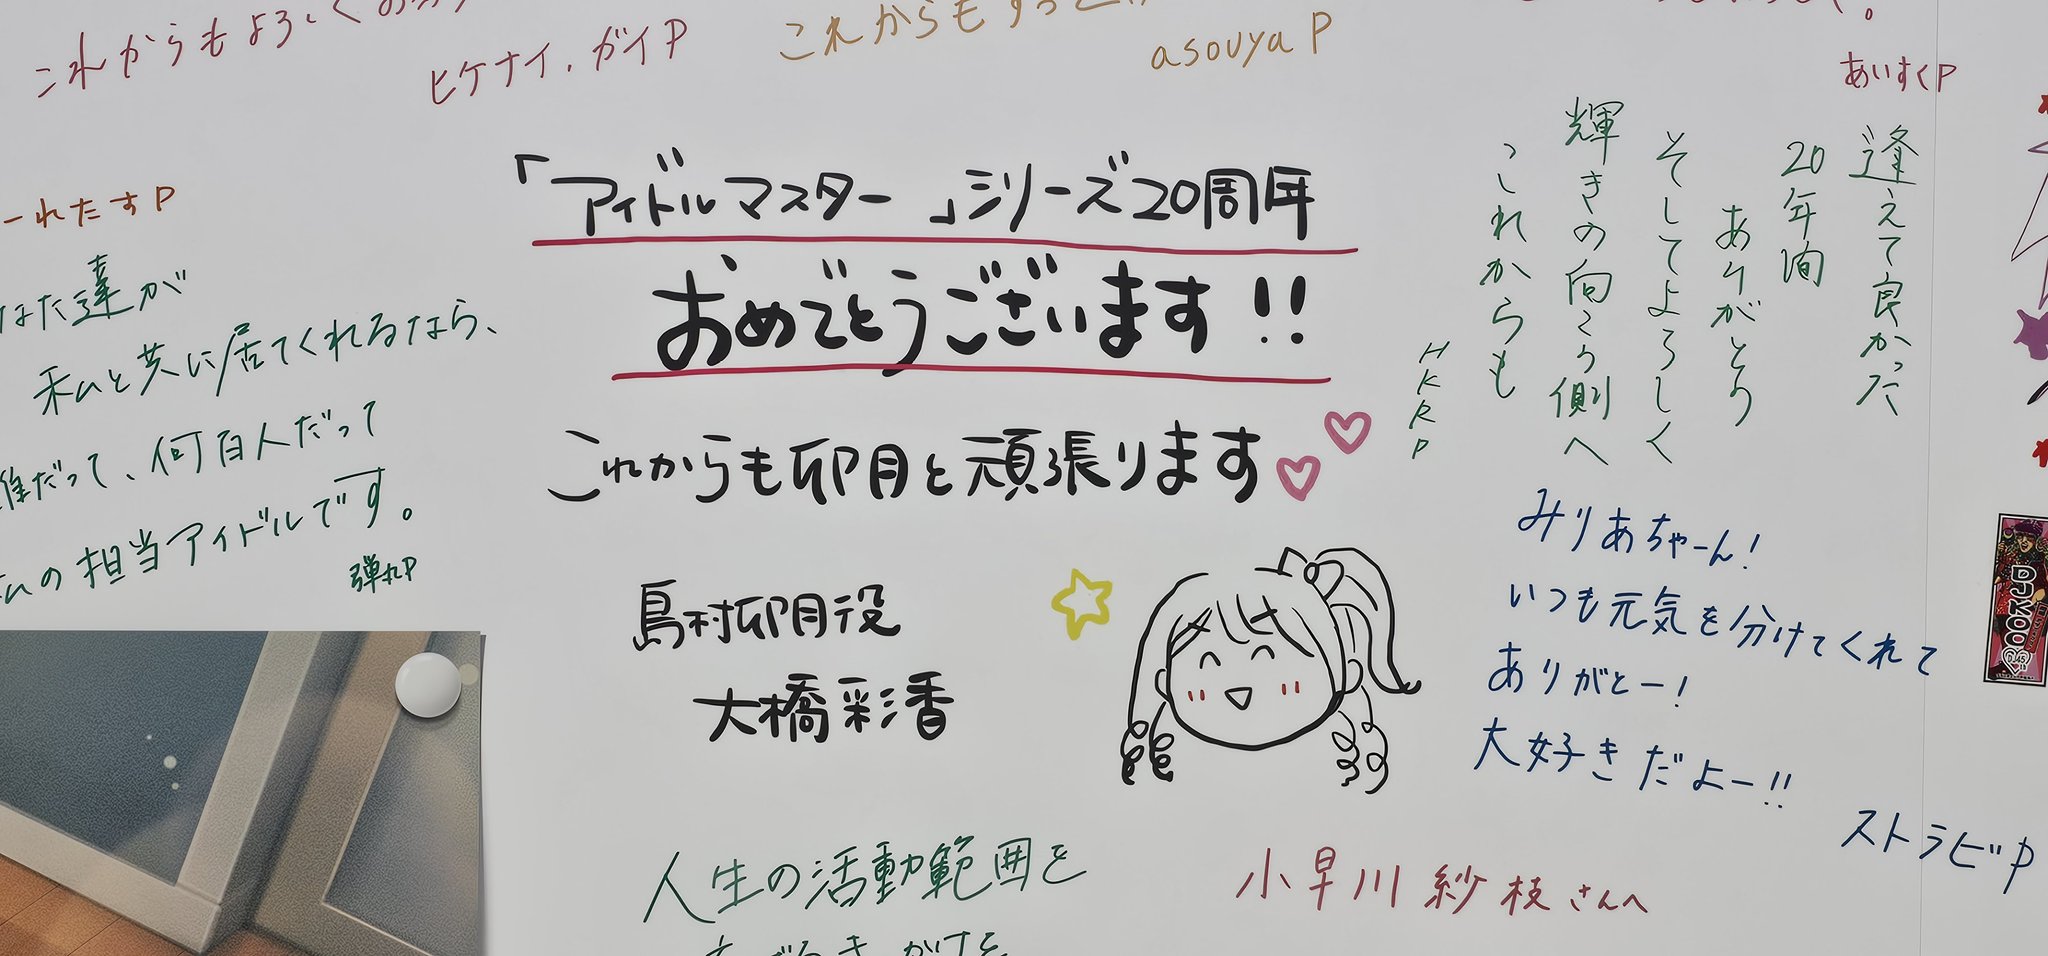 これからもよろしくお
ヒケナイ.ガイP
これからもずっと
asouyaP
あいすくP
ーれたすP
なた達が
私と共に居てくれるなら、
誰だって、何百人だって
私の担当アイドルです。
弾丸P
「アイドルマスター」シリーズ20周年
おめでとうございます!!
これからも卯月と頑張ります
島村卯月役
大橋彩香
逢えて良かった
20年間
ありがとう
そしてよろしく
輝きの向こう側へ
これからも
HKRP
みりあちゃーん!
いつも元気を分けてくれて
ありがとー!
大好きだよー!!
ストラビP
DJKOO
人生の活動範囲を
小早川紗枝さんへ